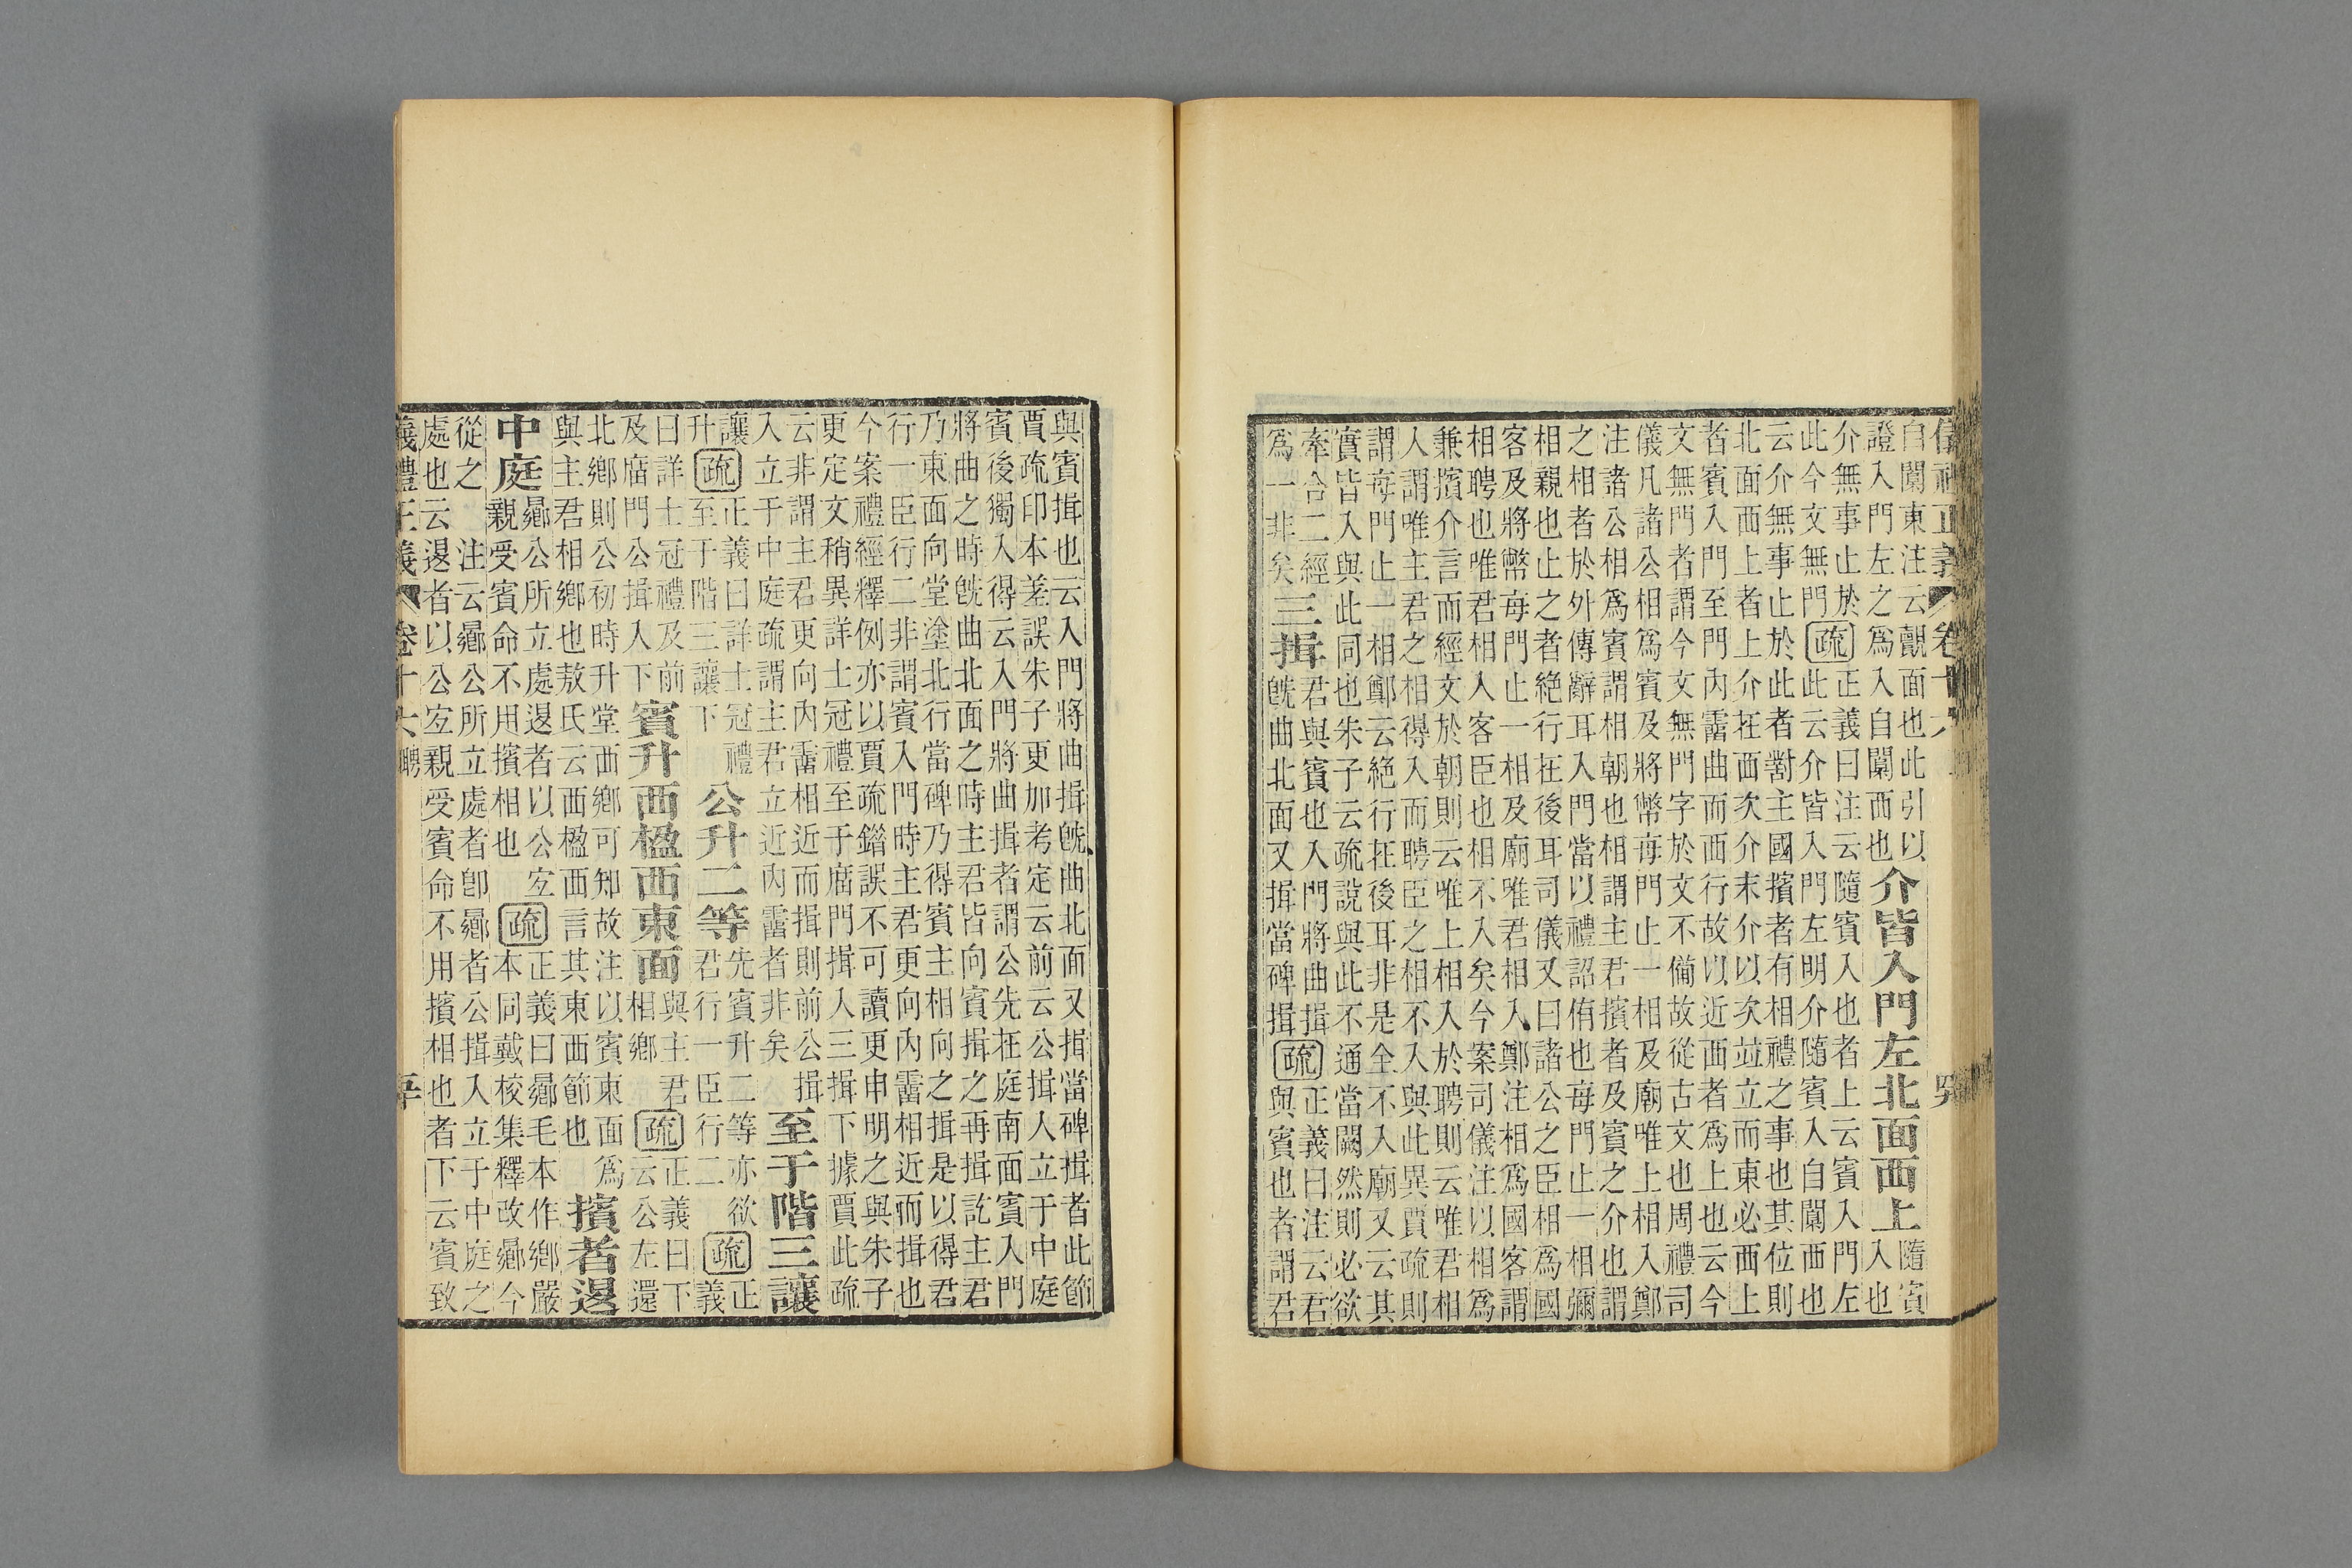 自闑東注云覿面也此引以
證入門左之爲入自闑西也
介皆入門左北面西上
隨賓
入也
介無事止於
此今文無門
疏
正義曰注云隨賓入也者上云賓入門左
此云介皆入門左明介隨賓入自闑西也
云介無事止於此者對主國擯者有相禮之事也其位則
北面西上者上介在西次介末介以次竝立而東必西上
者賓入門至門內霤曲而西行故以近西者爲上也云今
文無門者謂今文無門字於文不備故從古文也周禮司
儀凡諸公相爲賓及將幣每門止一相及廟唯上相入鄭
注諸公相爲賓謂相朝也相謂主君擯者及賓之介也謂
之相者於外傳辭耳入門當以禮詔侑也每門止一相彌
相親也止之者絕行在後耳司儀又曰諸公之臣相爲國
客及將幣每門止一相及廟唯君相入鄭注相爲國客謂
相聘也唯君相入客臣也相不入矣今案司儀注以相爲
兼擯介言而經文於朝則云唯上相入於聘則云唯君相
人謂唯主君之相得入而聘臣之相不入與此異賈疏則
謂每門止一相鄭云絕行在後耳非是全不入廟又云其
實皆入與此同也朱子云疏說與此不通當闕然則必欲
牽合二經
爲一非矣
三揖
君與賓也入門將曲揖
旣曲北面又揖當碑揖
疏
正義曰注云君
與賓也者謂君
與賓揖也云入門將曲揖旣曲北面又揖當碑揖者此節
賈疏印本差誤朱子更加考定云前云公揖人立于中庭
賓後獨入得云入門將曲揖者謂公先在庭南面賓入門
將曲之時旣曲北面之時主君皆向賓揖之再揖訖主君
乃東面向堂塗北行當碑乃得賓主相向之揖是以得君
行一臣行二非謂賓入門時主君更向內霤相近而揖也
今案禮經釋例亦以賈疏鐕誤不可讀更申明之與朱子
更定文稍異詳士冠禮至于庿門揖入三揖下據賈此疏
云非謂主君更向內霤相近而揖則前公揖
入立于中庭疏謂主君立近內霤者非矣
至于階三讓
讓
升
疏
正義曰詳士冠禮
至于階三讓下
公升二等
先賓升二等亦欲
君行一臣行二
疏
正
義
曰詳士冠禮及前
及庿門公揖入下
賓升西楹西東面
與主君
相鄉
疏
正義曰下
云公左還
北鄉則公初時升堂西鄉可知故注以賓東面爲
與主君相鄉也敖氏云西楹西言其東西節也
擯者退
中庭
曏公所立處退者以公宐
親受賓命不用擯相也
疏
正義曰曏毛本作鄉嚴
本同戴校集釋改曏今
從之 注云曏公所立處者卽曏者公揖入立于中庭之
處也云退者以公宐親受賓命不用擯相也者下云賓致